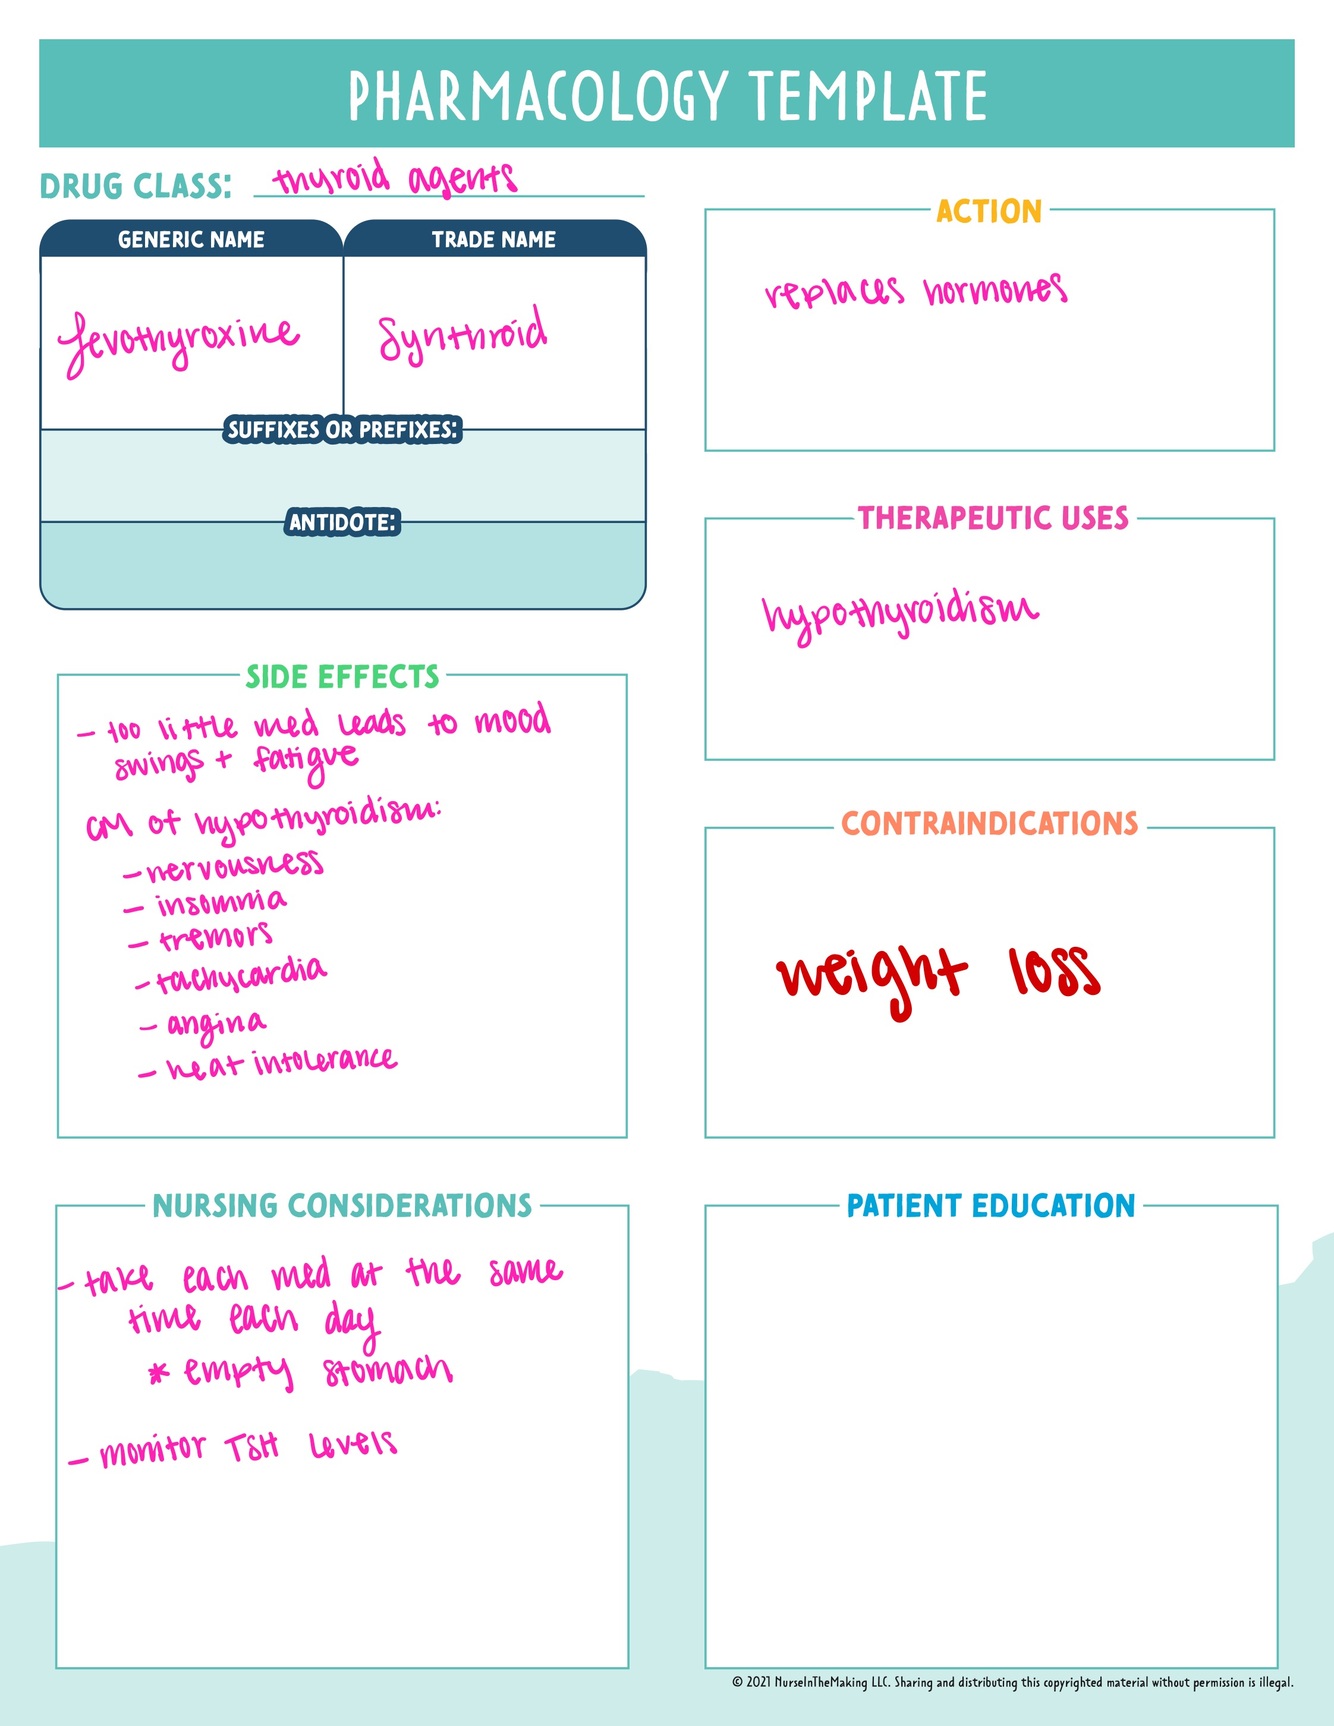 PHARMACOLOGY TEMPLATE
DRUG CLASS: thyroid agents
GENERIC NAME
TRADE NAME
levothyroxine
Synthroid
SUFFIXES OR PREFIXES:
ANTIDOTE:
SIDE EFFECTS
- too little med leads to mood
swings + fatigue
CM of hypothyroidism:
- nervousness
- insomnia
- tremors
- tachycardia
- angina
- heat intolerance
NURSING CONSIDERATIONS
- take each med at the same
time each day
* empty stomach
- monitor TSH levels
ACTION
replaces hormones
THERAPEUTIC USES
hypothyroidism
CONTRAINDICATIONS
weight loss
PATIENT EDUCATION
© 2021 NurseInTheMaking LLC. Sharing and distributing this copyrighted material without permission is illegal.